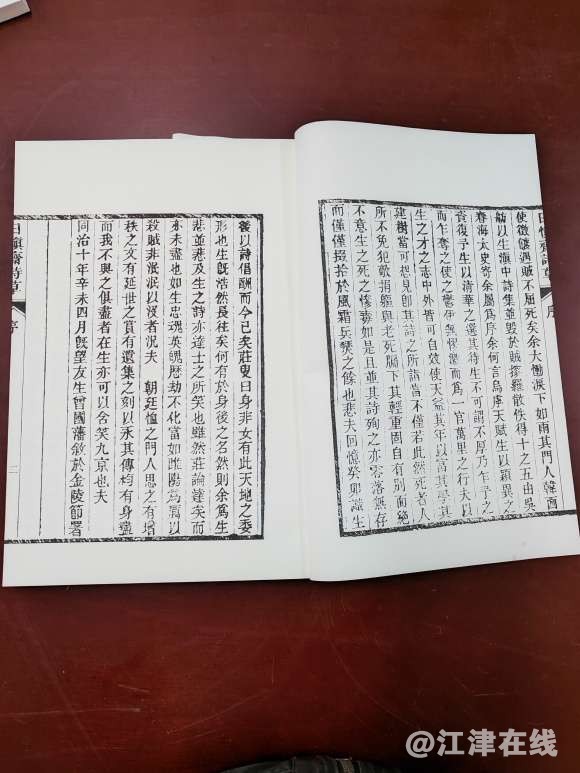 日慎齋詩草
序
使徵餽遇賊不屈死矣余大慟淚下如雨其門人韓酉
舫以生滇中詩集並毀於賊搜羅散佚得十之五由吳
春海太史寄余屬爲序余何言烏虖天賦生以穎異之
資復予生以清華之選其待生不可謂不厚乃乍予之
而乍奪之使之鬱伊無憀而爲一官萬里之行夫以
生之才之志中外皆可自效使天益其年以富其學其
建樹當可想見即其詩之所詣皆不僅若此然死者人
所不免犯敵捐軀與老死牖下其輕重固自有別而絕
不意生之死之慘毒如是且並其詩殉之亦零落無存
而僅僅掇拾於風霜兵燹之餘也悲夫回憶癸卯識生
後以詩倡酬而今已矣莊叟曰身非女有此天地之委
形也生旣浩然長往矣何有於身後之名然則余爲生
悲並悲及生之詩亦達士之所笑也雖然莊論達矣而
亦未盡也如生忠魂英魄歷劫不化當如睢陽爲厲以
殺賊非泯泯以沒者況夫 朝廷恤之門人思之有堦
秩之文有延世之賞有遺集之刻以永其傳均有身盡
而我不與之俱盡者在生亦可以含笑九京也夫
同治十年辛未四月旣望友生曾國藩敘於金陵節署
日慎齋詩草
序
二
@江津在线